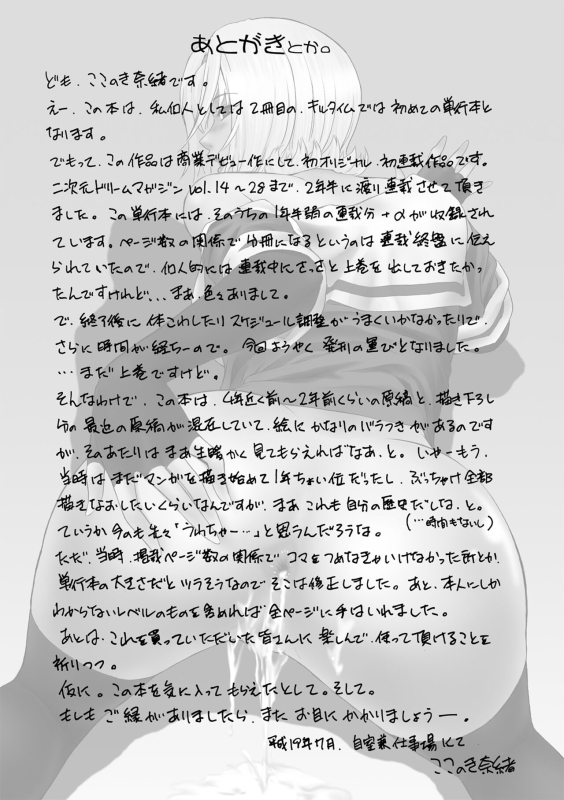 あとがきとか。
ども、ここのき奈緒です。
えー、この本は、私個人としては2冊目の、キルタイムでは初めての単行本と
なります。
でもって、この作品は商業デビュー作にして、初オリジナル、初連載作品です。
二次元ドリームマガジン vol.14〜28まで、2年半に渡り連載させて頂き
ました。この単行本には、そのうちの1年半弱の連載分+αが収録され
ています。ページ数の関係で分冊になるというのは連載終盤に伝え
られていたので、個人的には連載中にさっさと上巻を出しておきたかっ
たんですけれど、、、まあ、色々ありまして。
で、終了後に体こわしたりスケジュール調整がうまくいかなかったりで、
さらに時間が経ちーので。今回ようやく発刊の運びとなりました。
…まだ上巻ですけど。
そんなわけで、この本は、4年近く前〜2年前くらいの原稿と、描き下ろし
分の最近の原稿が混在していて、絵にかなりのバラつきがあるのです
が、そのあたりはまあ生暖かく見てもらえればなあ、と。じゃーもう、
当時はまだマンガを描き始めて1年ちょい位だったし、ぶっちゃけ全部
描きなおしたいくらいなんですが、まあこれも自分の歴史だしな、と。
ていうか今のも先々「うわちゃー…」と思うんだろうな。(…時間もないし)
ただ、当時、掲載ページ数の関係でコマをつめなきゃいけなかった所とか、
単行本の大きさだとツラそうなのでそこは修正しました。あと、本人にしか
わからないレベルのものを含めれば全ページに手はいれました。
あとは、これを買っていただいた皆さんに楽しんで、使って頂けることを
祈りつつ。
仮に。この本を気に入ってもらえたとして。そして。
もしもご縁がありましたら、またお目にかかりましょうー。
平成19年7月、自室兼仕事場にて
ここのき奈緒